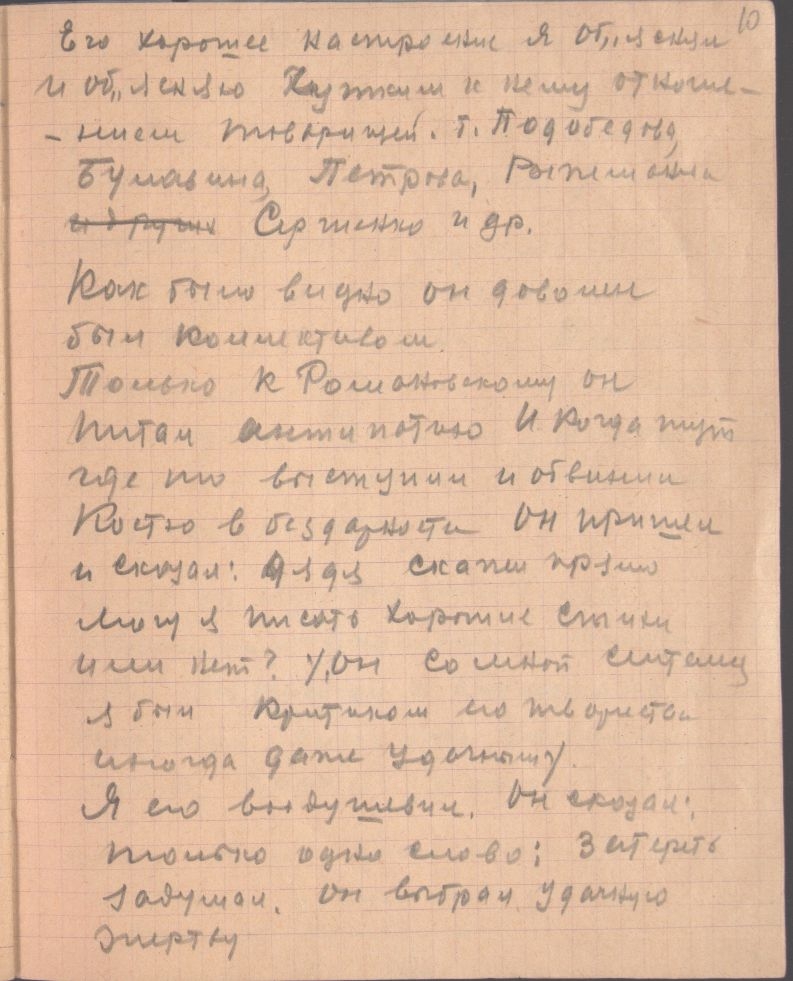 10
Его хорошее настроение я об„яснял
и об„ясняю Чутким к нему отноше-
- нием товарищей. т. Подобедова,
Булавина, Петрова,
и других Сергиенко и др.
Как было видно он доволен
был коллективом
Только к Романовскому он
питал антипатию И когда тут
где то выступил и обвинил
Костю в бездарности Он пришел
и сказал: Дядя скажи прямо
могу я писать хорошие стихи
или нет? /Он со мной считался
я был критиком его творчества
иногда даже удачным/.
Я его воодушевил. Он сказал:
только одно слово: Затереть
задумал. Он выбрал удачную
жертву